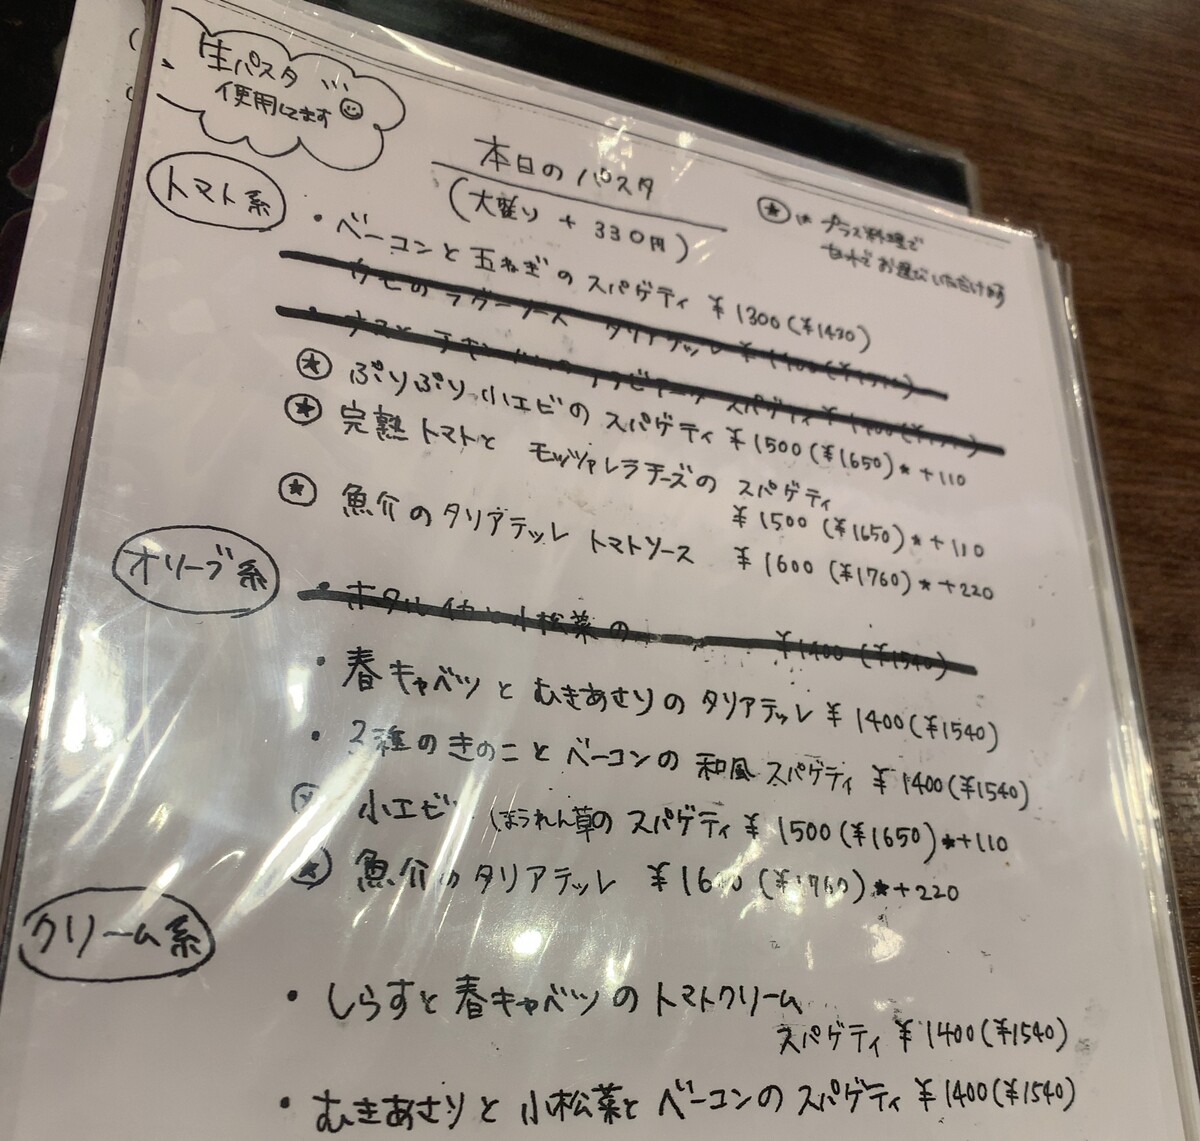 生パスタ
使用してます
本日のパスタ
(大盛り + 330円)
★は プラス料理で
お選びいただけます
トマト系
・ベーコンと玉ねぎのスパゲティ ¥1300(¥1430)
ラグーソース タリアテッレ ¥1400(¥1540)
スパゲティ ¥1400(¥1540)
★ ぷりぷり小エビのスパゲティ ¥1500(¥1650)*+110
★ 完熟トマトと モッツァレラチーズの スパゲティ
¥1500(¥1650)*+110
★ 魚介のタリアテッレ トマトソース ¥1600(¥1760)*+220
オリーブ系
・ホタルイカと小松菜の ¥1400(¥1540)
・春キャベツとむきあさりのタリアテッレ ¥1400(¥1540)
・3種のきのことベーコンの和風スパゲティ ¥1400(¥1540)
小エビ ほうれん草のスパゲティ ¥1500(¥1650)*+110
★ 魚介のタリアテッレ ¥1600(¥1760)*+220
クリーム系
・しらすと春キャベツのトマトクリーム
スパゲティ ¥1400(¥1540)
・むきあさりと小松菜とベーコンのスパゲティ ¥1400(¥1540)